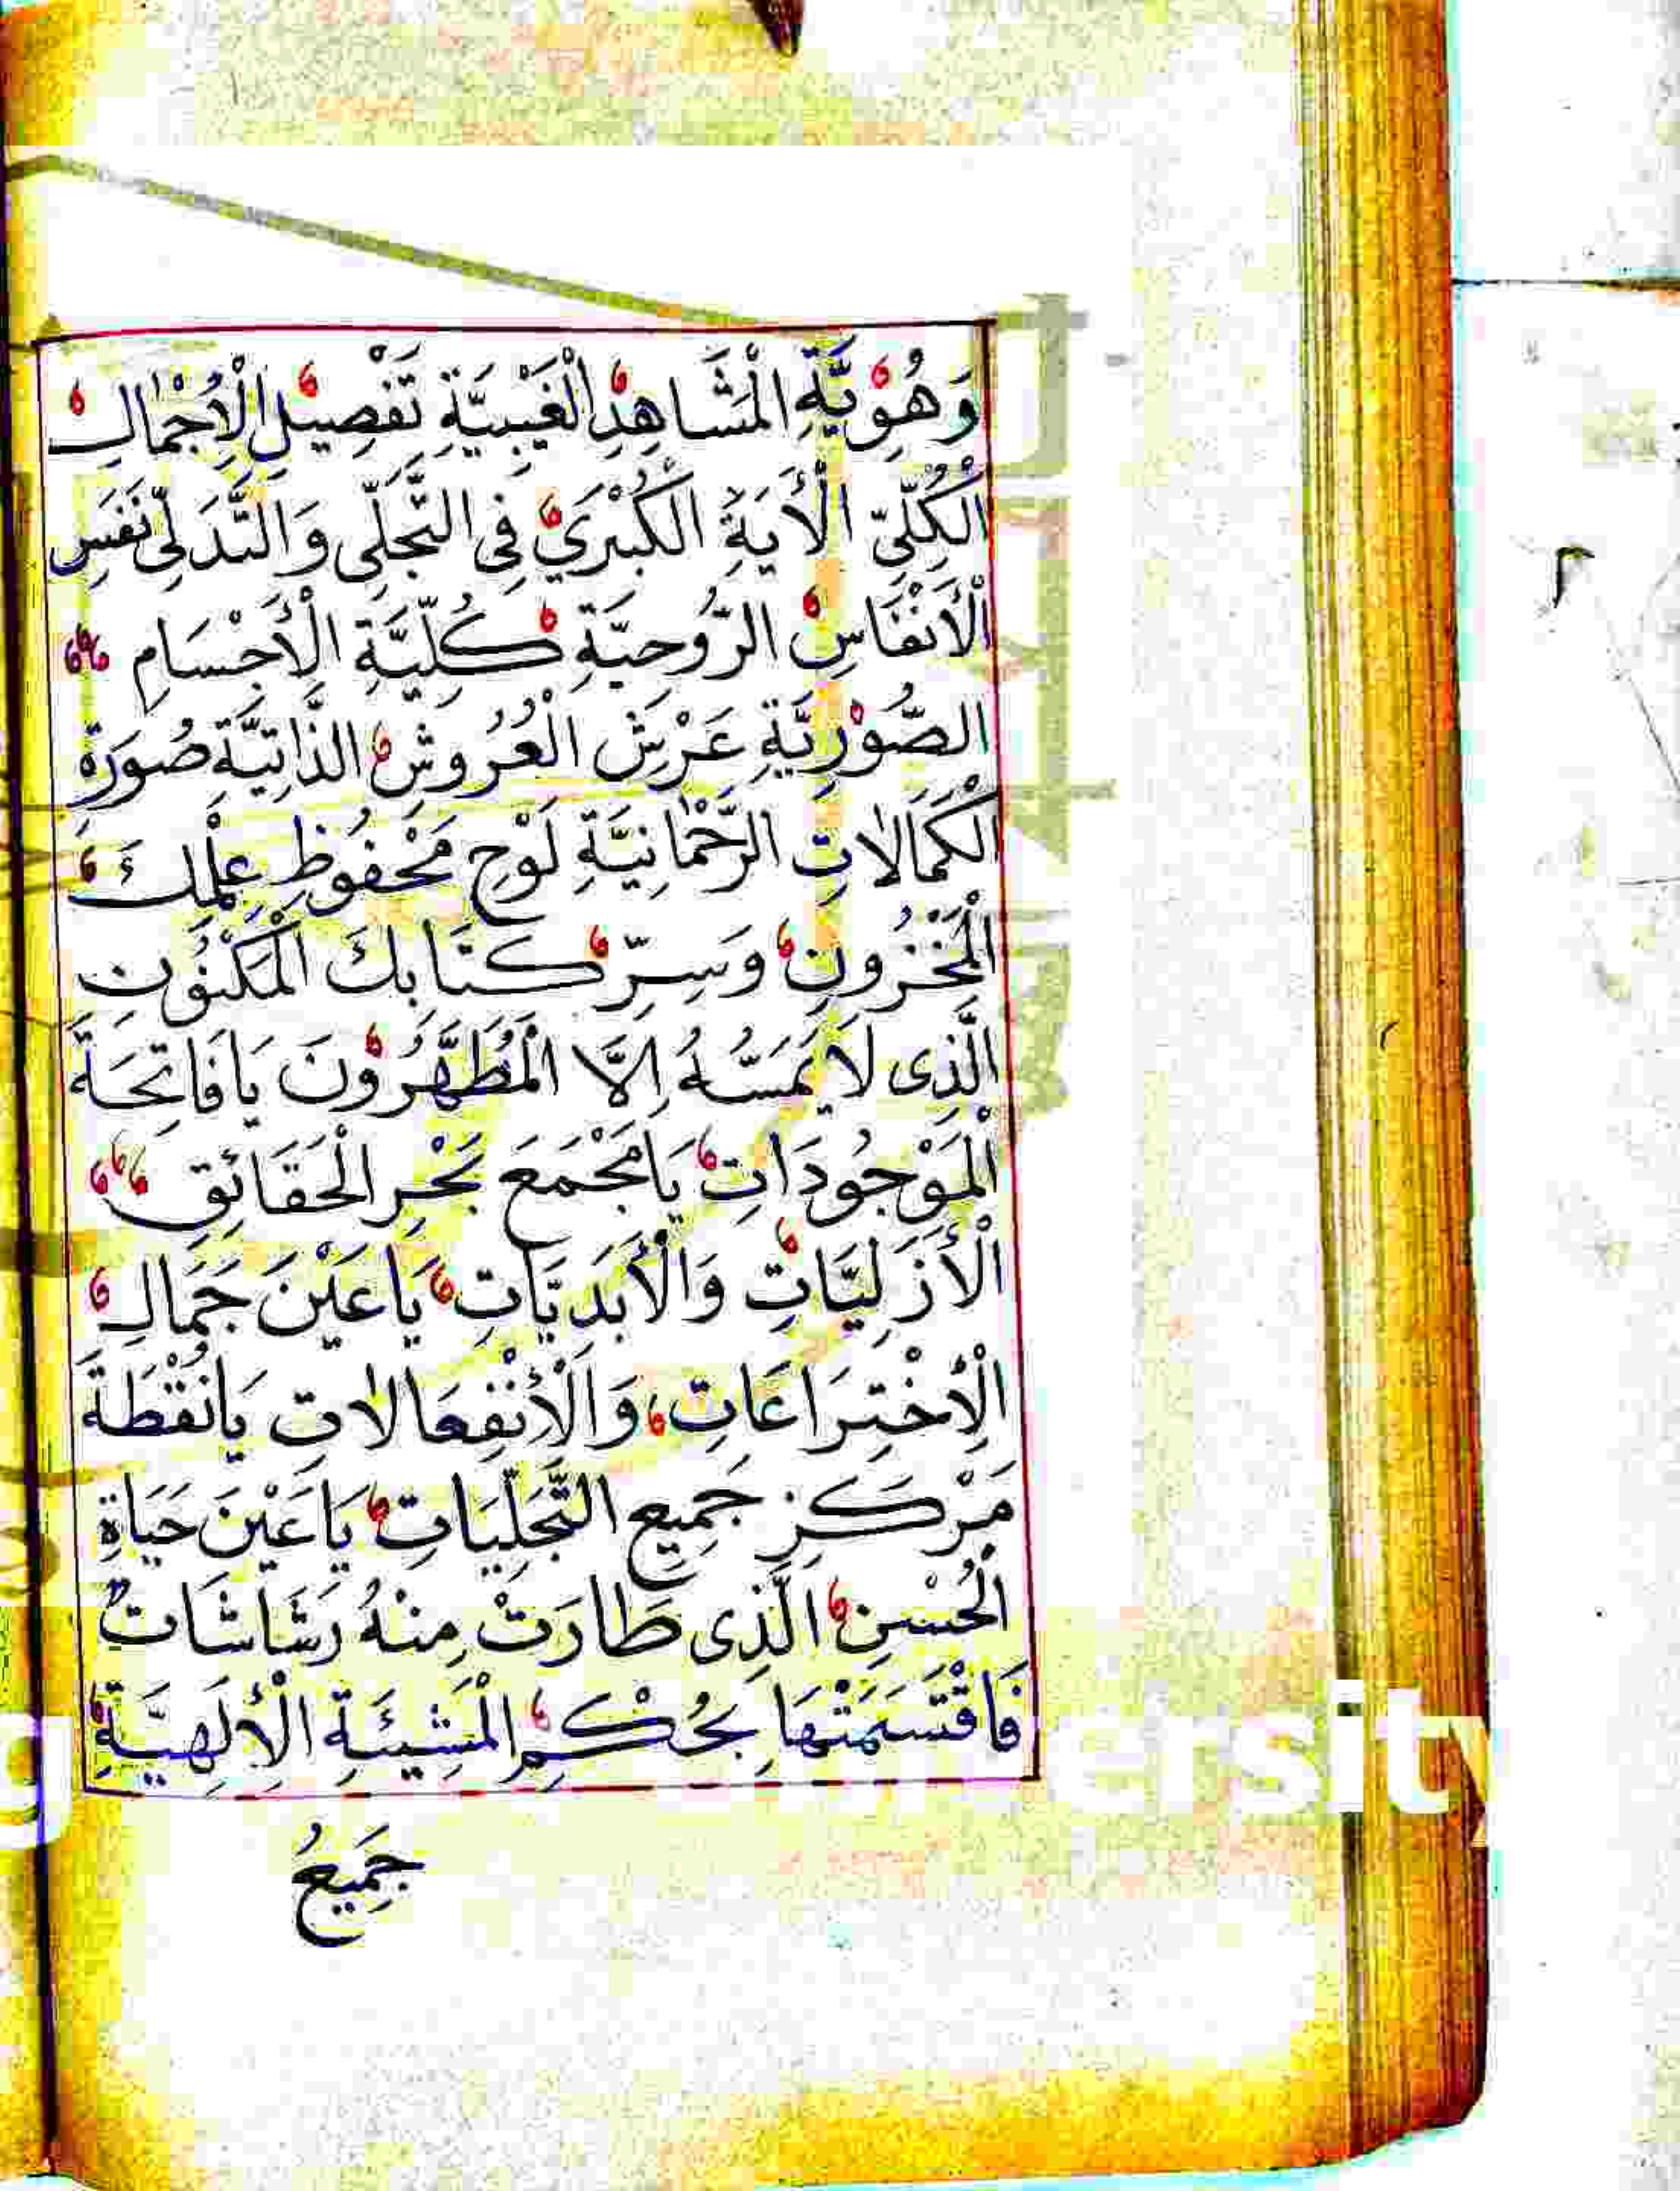 وَهُوِيَّةِ الْمَشَاهِدِ الْغَيْبِيَّةِ تَفْصِيلِ الْاِجْمَالِ
الْكُلِّيِّ الْأَيَةِ الْكُبْرَيٰ فِي التَّجَلِّي وَالتَّدَلِّي نَفَسِ
الْأَنْفَاسِ الرُّوحِيَّةِ كُلِّيَّةِ الْأَجْسَامِ
الصُّوْرِيَّةِ عَرْشِ الْعُرُوشِ الذَّاتِيَّةِ صُورَةِ
الْكَمَالَاتِ الرَّحْمَانِيَّةِ لَوْحِ مَحْفُوظِ عِلْمِكَ
الْمَخْزُونِ وَسِرِّ كِتَابِكَ الْمَكْنُوْنِ
الَّذِى لَا يَمَسُّهُ اِلَّا الْمُطَهَّرُوْنَ يَا فَاتِحَةَ
الْمَوْجُودَاتِ يَا مَجْمَعَ بَحْرِ الْحَقَائِقِ
الْأَزَلِيَّاتِ وَالْأَبَدِيَّاتِ يَا عَيْنَ جَمَالِ
الْاِخْتِرَاعَاتِ وَالْاِنْفِعَالَاتِ يَا نُقْطَةَ
مَرْكَزِ جَمِيعِ التَّجَلِّيَاتِ يَا عَيْنَ حَيَاةِ
الْحُسْنِ الَّذِى طَارَتْ مِنْهُ رَشَاشَاتٌ
فَاقْتَسَمَتْهَا بِحُكْمِ الْمَشِيئَةِ الْاِلَهِيَّةِ
جَمِيعُ
ersity